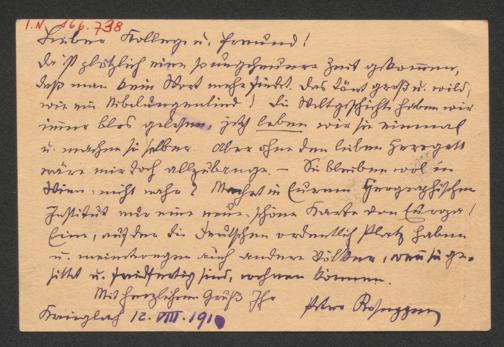 I.N. 166.738
Lieber Kollege u. Freund!
Da ist plötzlich eine so ungeheuere Zeit gekommen,
daß man kein Wort mehr findet. Das tönt groß u. wild,
wie ein Nibelungenlied! Die Weltgeschichte haben wir
immer blos gelesen, jetzt leben wir sie einmal
u. machen sie selber. Aber ohne den lieben Herrgott
wäre mir doch allzubange. – Sie bleiben wol in
Wien, nicht wahr? Machet in Eurem Geographischen
Institut nur eine neue, schöne Karte von Europa!
Eine, auf der die Deutschen ordentlich Platz haben
u. meinetwegen auch andere Völker, wenn sie ge-
sittet u. sind, wohnen können.
Mit herzlichem Gruß Ihr
Peter Rosegger
Krieglach 12. VIII. 191